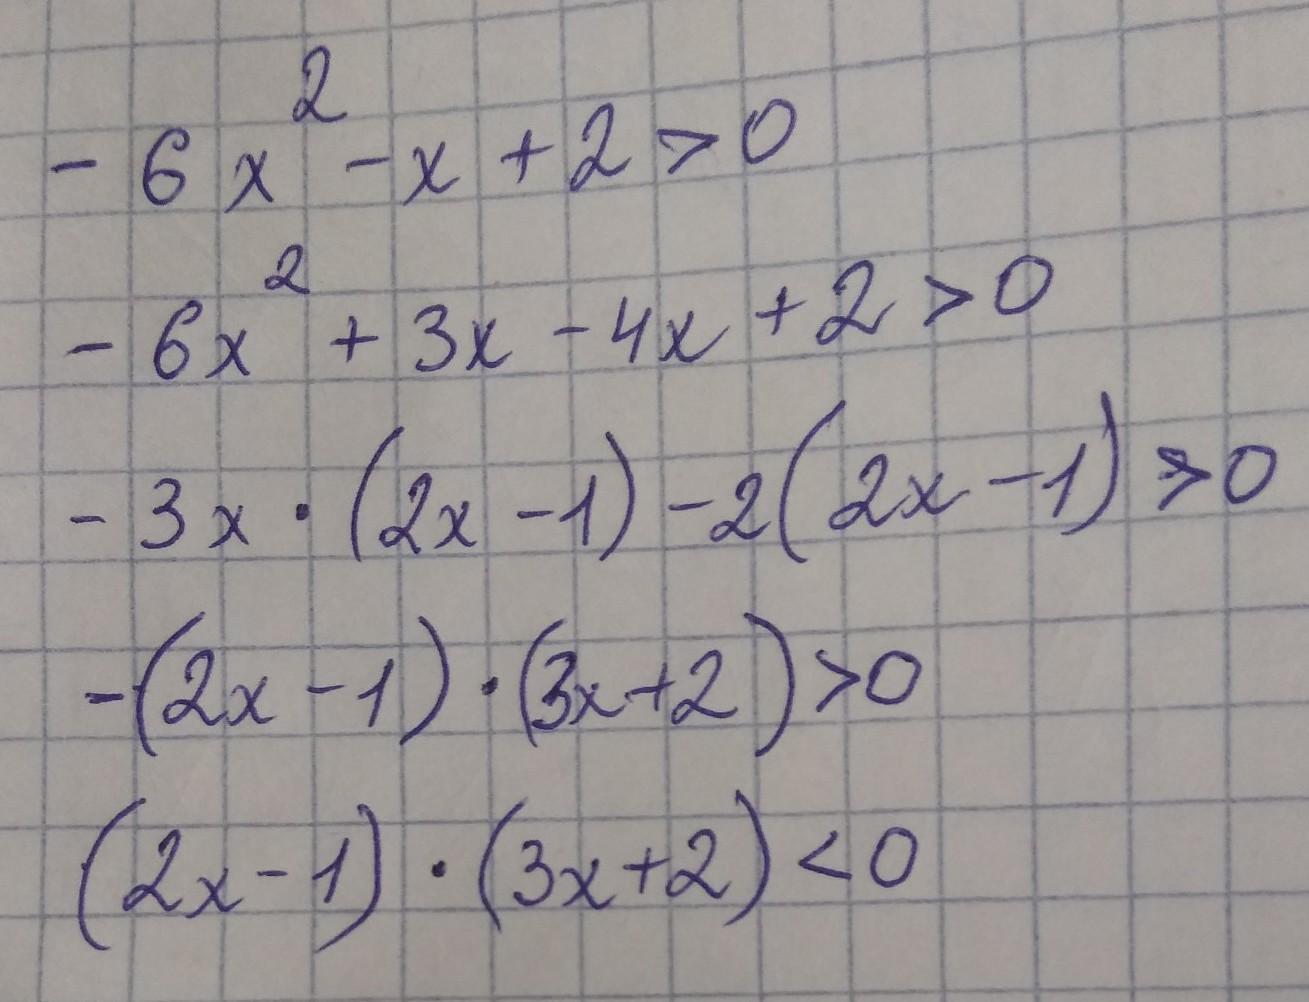 - 6x² - x + 2 > 0
- 6x² + 3x - 4x + 2 > 0
- 3x · (2x - 1) - 2(2x - 1) > 0
-(2x - 1) · (3x + 2) > 0
(2x - 1) · (3x + 2) < 0